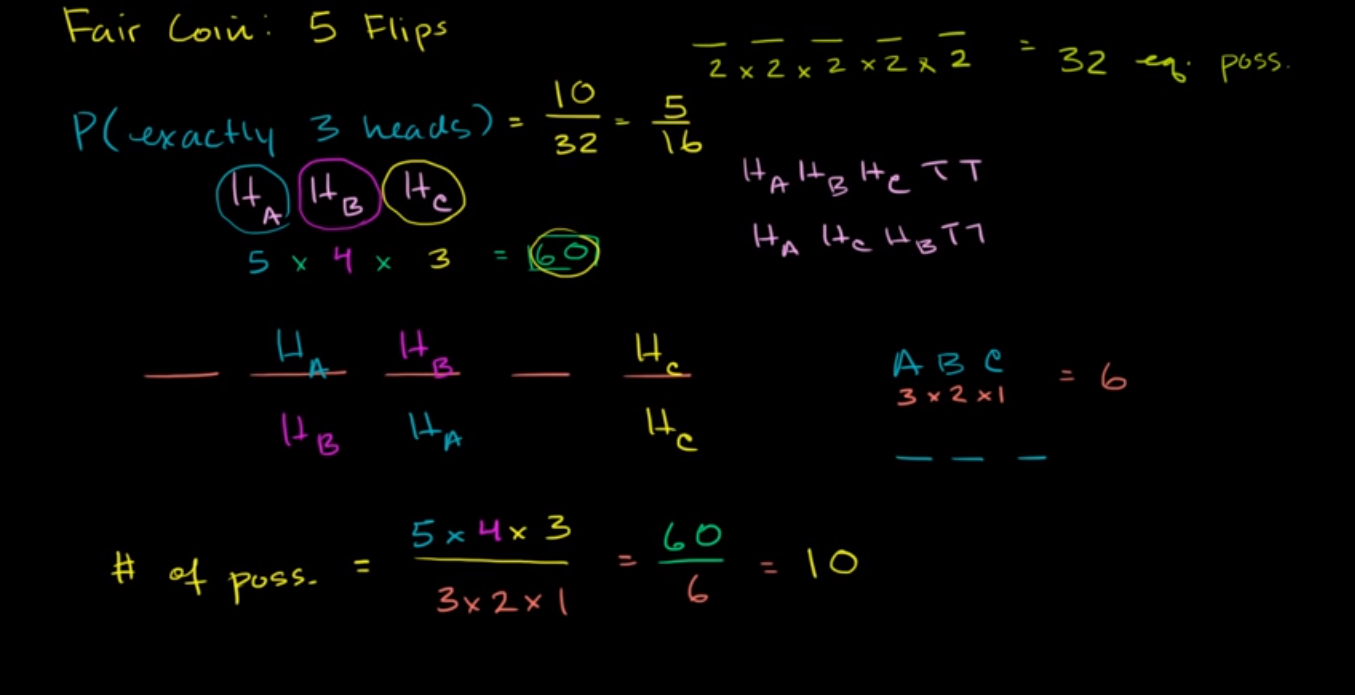 Fair Coin: 5 Flips
2 x 2 x 2 x 2 x 2 = 32 eq. poss.
P(exactly 3 heads) = 10/32 = 5/16
H_A H_B H_C
5 x 4 x 3 = 60
H_A H_B H_C T T
H_A H_C H_B T T
H_A H_B H_C
H_B H_A H_C
A B C
3 x 2 x 1 = 6
# of poss. = 5 x 4 x 3 / 3 x 2 x 1 = 60/6 = 10